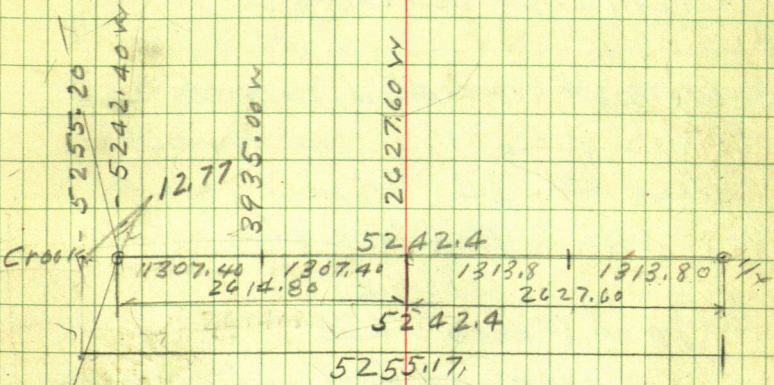 5255.20
5242.40 W
3935.00 W
2627.60 W
12.77
5242.4
1307.40 1307.40 1313.8 1313.80
2614.80 2627.60
5242.4
5255.17